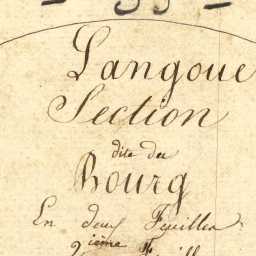 Langoue
Section
dite du
Bourg
En deux Feuilles
2ième Feuill